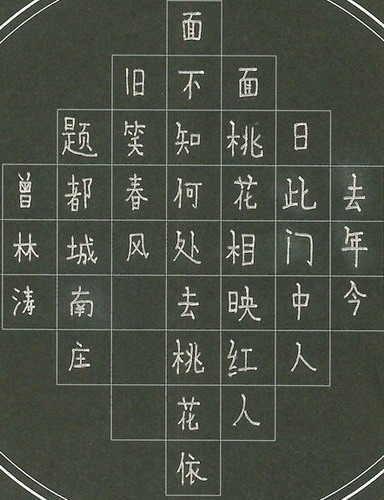 去年今
日此门中人
面桃花相映红人
面不知何处去桃花依
旧笑春风
题都城南庄
曾林涛